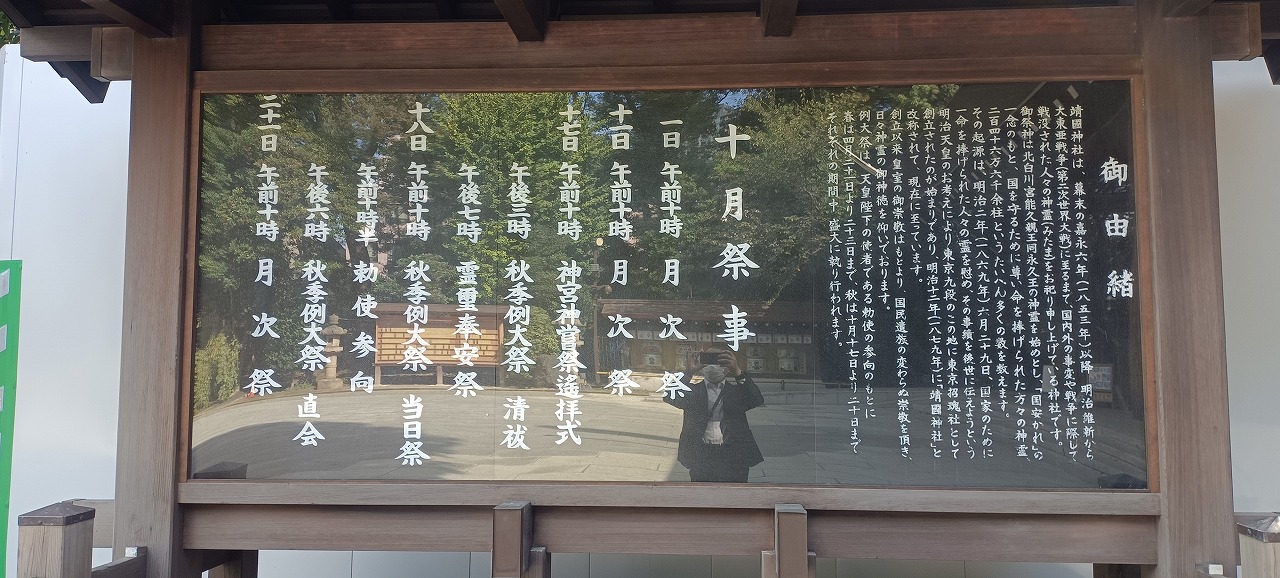 御由緒
靖國神社は、幕末の嘉永六年(一八五三年)以降、明治維新から
大東亜戦争(第二次世界大戦)に至るまで、国内外の事変や戦争に際して、
戦没された人々の神霊(みたま)をお祀り申し上げている神社です。
御祭神は北白川宮能久親王同永久王の神霊を始めとし、「国安かれ」の
一念のもと、国を守るために尊い命を捧げられた方々の神霊、
二百四十六万六千余柱というたいへん多くの数を数えます。
その起源は、明治二年(一八六九年)六月二十九日、国家のために
一命を捧げられた人々の霊を慰め、その事績を後世に伝えようという
明治天皇のお考えにより東京九段のこの地に東京招魂社として
創立されたのが始まりであり、明治十二年(一八七九年)に「靖國神社」と
改称されて、現在に至っています。
創立以来皇室の御崇敬はもとより、国民遺族の変わらぬ崇敬を頂き、
日々神霊の御神徳を仰いでおります。
例大祭は、天皇陛下の使者である勅使の参向のもとに
春は四月二十一日より二十三日まで、秋は十月十七日より二十日まで
それぞれの期間中、盛大に執り行われます。
十月祭事
一日 午前十時 月次祭
十一日 午前十時 月次祭
十七日 午前十時 神宮神嘗祭遙拝式
午後三時 秋季例大祭 清祓
午後七時 霊璽奉安祭
十八日 午前十時 秋季例大祭 当日祭
午前十時半 勅使参向
午後六時 秋季例大祭 直会
二十一日 午前十時 月次祭